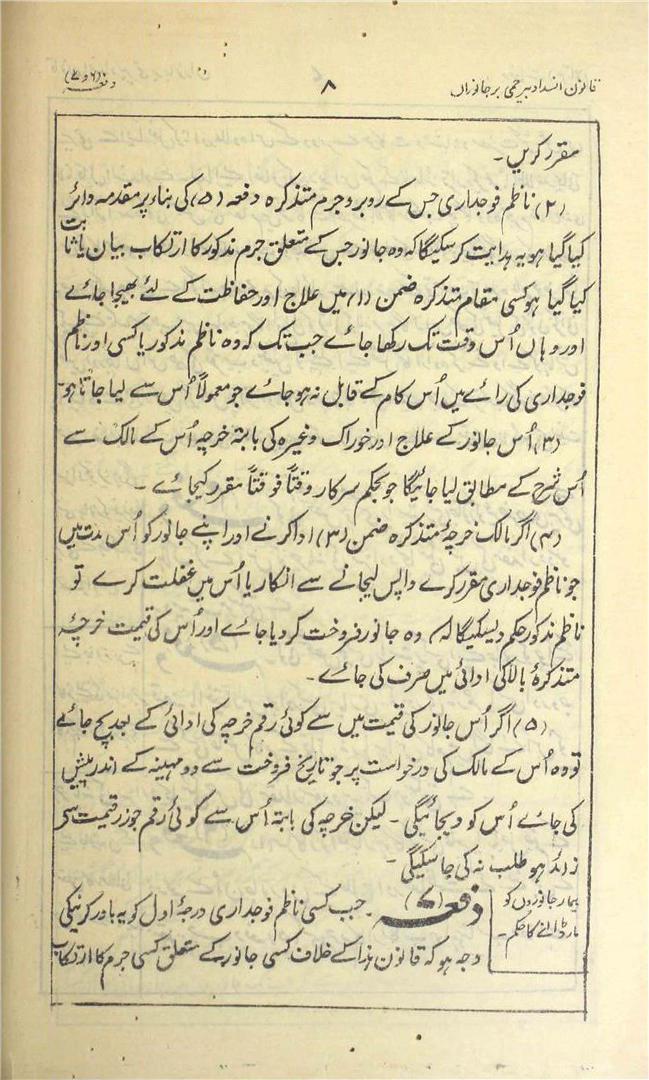 قانون انسداد بیرحمی بر جانوراں ۸ دفعہ (۶ و ۷)
مقرر کریں۔
(۲) ناظم فوجداری جس کے روبرو جرم متذکرہ دفعہ (۵) کی بناء پر مقدمہ دائر
کیا گیا ہو یہ ہدایت کر سکیگا کہ وہ جانور جس کے متعلق جرم مذکور کا ارتکاب بیان یا ثابت
کیا گیا ہو کسی مقام متذکرہ ضمن (۱) میں علاج اور حفاظت کے لئے بھیجا جائے
اور وہاں اُس وقت تک رکھا جائے جب تک کہ وہ ناظم مذکور یا کسی اور ناظم
فوجداری کی رائے میں اُس کام کے قابل نہ ہو جائے جو معمولاً اُس سے لیا جاتا ہو۔
(۳) اُس جانور کے علاج اور خوراک وغیرہ کی بابتہ خرچہ اُس کے مالک سے
اُس شرح کے مطابق لیا جائیگا جو بحکم سرکار وقتاً فوقتاً مقرر کیجائے۔
(۴) اگر مالک خرچۂ متذکرہ ضمن (۳) ادا کرنے اور اپنے جانور کو اُس مدت میں
جو ناظم فوجداری مقرر کرے واپس لیجانے سے انکار یا اُس میں غفلت کرے تو
ناظم مذکور حکم دیسکیگا کہ وہ جانور فروخت کر دیا جائے اور اُس کی قیمت خرچۂ
متذکرۂ بالا کی ادائی میں صرف کی جائے۔
(۵) اگر اُس جانور کی قیمت میں سے کوئی رقم خرچہ کی ادائی کے بعد بچ جائے
تو وہ اُس کے مالک کی درخواست پر جو تاریخ فروخت سے دو مہینہ کے اندر پیش
کی جائے اُس کو دیجائیگی۔ لیکن خرچہ کی بابتہ اُس سے کوئی رقم جو زر قیمت سے
زائد ہو طلب نہ کی جا سکیگی۔
بیمار جانوروں کو
مار ڈالنے کا حکم۔
دفعہ (۷)۔ جب کسی ناظم فوجداری درجۂ اول کو یہ باور کرنیکی
وجہ ہو کہ قانون ہذا کے خلاف کسی جانور کے متعلق کسی جرم کا ارتکاب